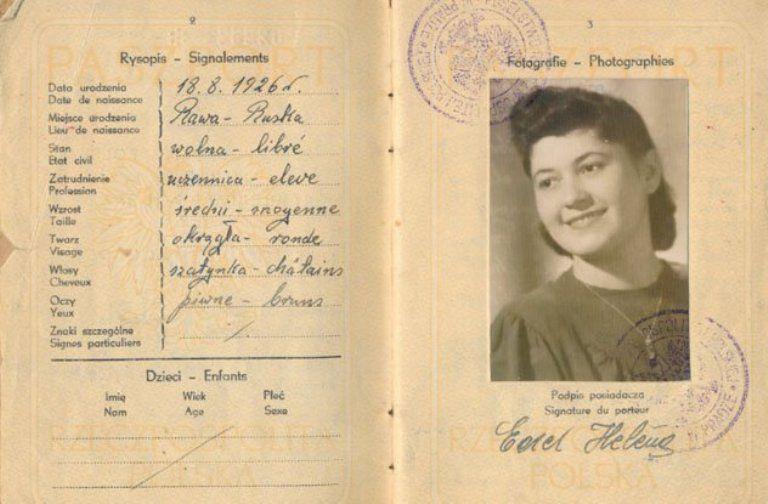 2
Rysopis – Signalements
Data urodzenia
Date de naissance
18.8.1926 r.
Miejsce urodzenia
Lieu de naissance
Rawa-Ruska
Stan
Etat civil
wolna – libré
Zatrudnienie
Profession
uczennica – eleve
Wzrost
Taille
średni – moyenne
Twarz
Visage
okrągła – ronde
Włosy
Cheveux
szatynka – châtains
Oczy
Yeux
piwne – bruns
Znaki szczególne
Signes particuliers
Dzieci – Enfants
Imię Wiek Płeć
Nom Age Sexe
3
Fotografie – Photographies
Podpis posiadacza
Signature du porteur
Helena
POLSKA